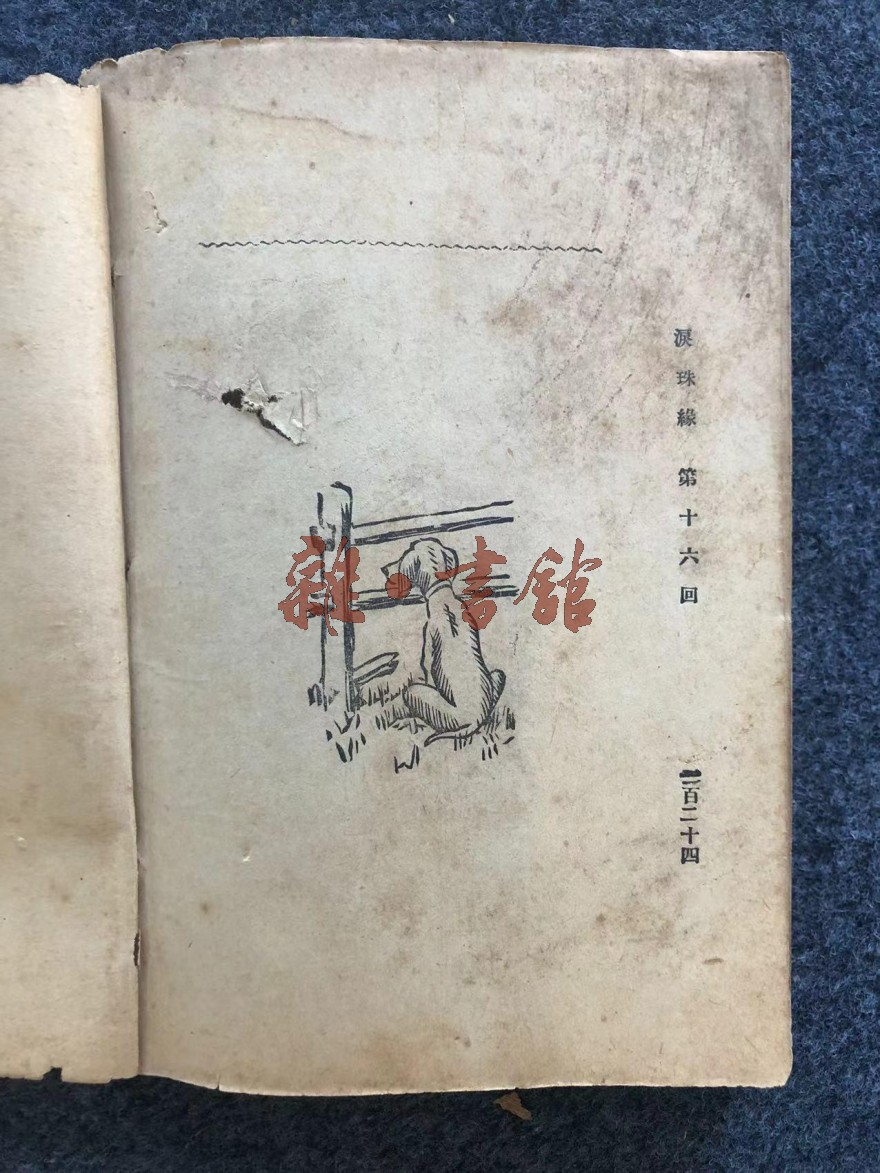 淚珠緣 第十六回
百二十四
雜·書館